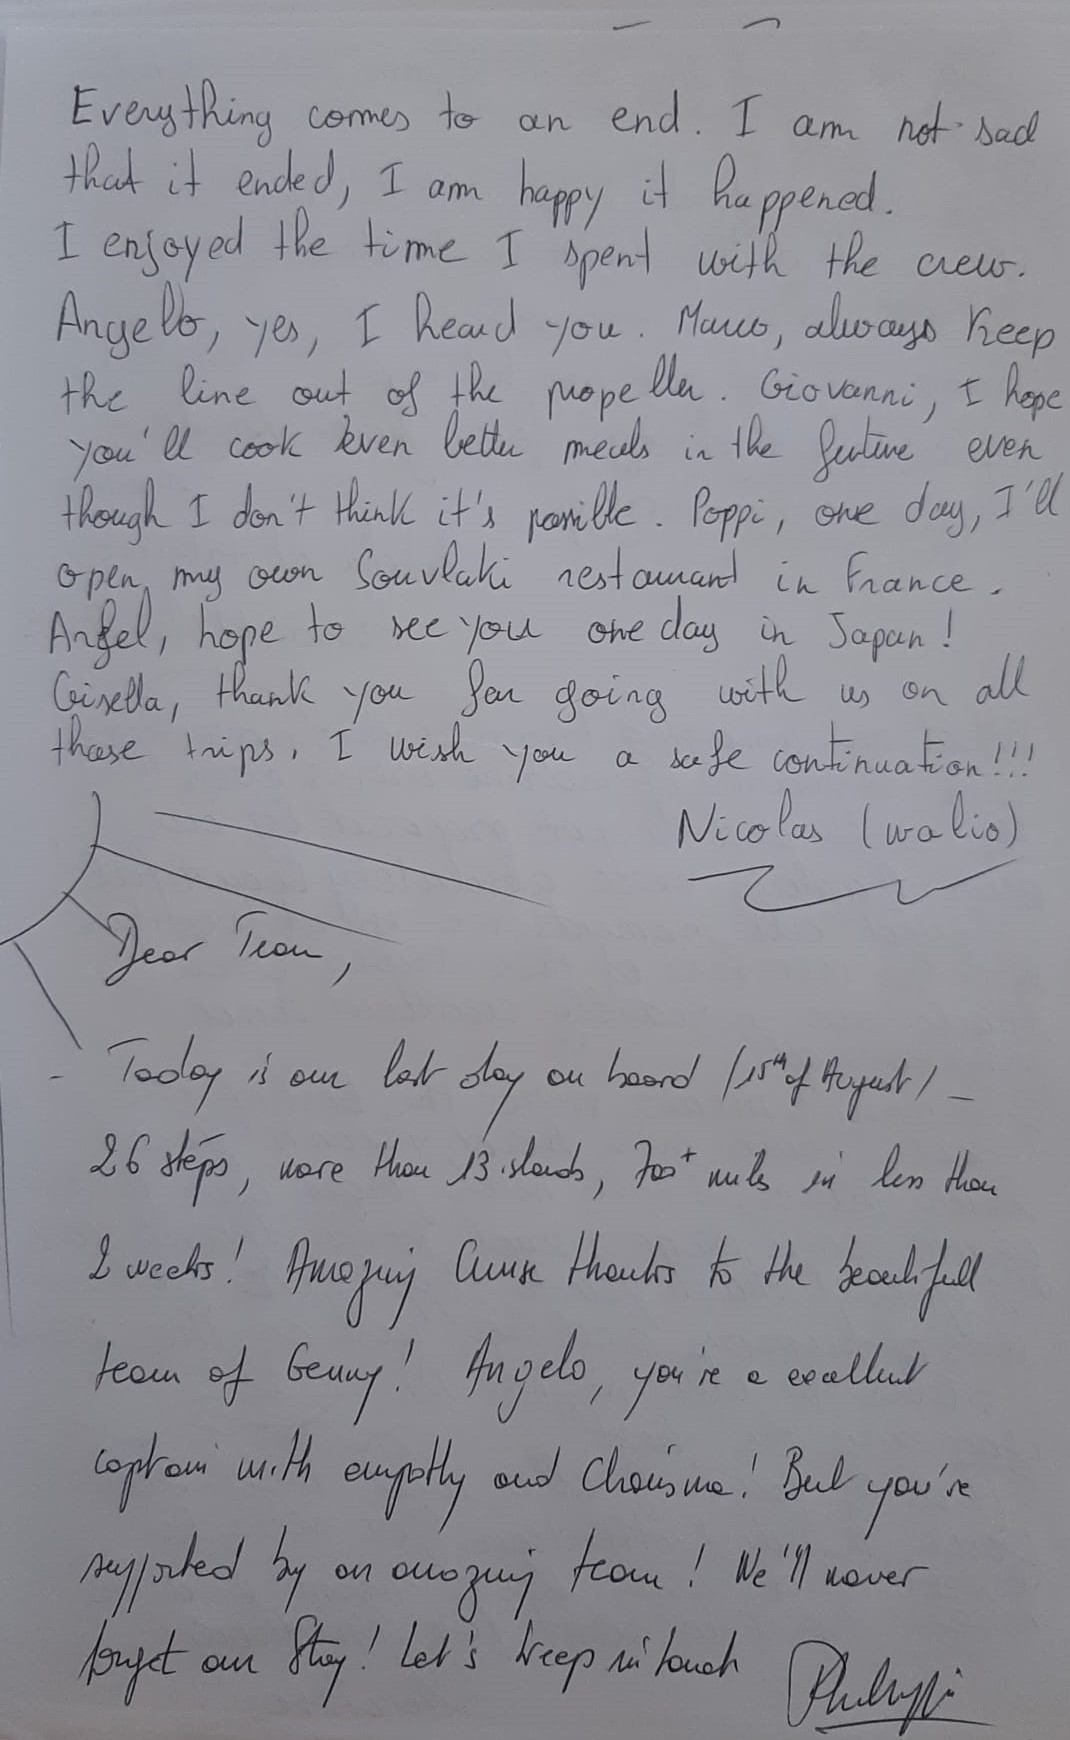 Everything comes to an end. I am not sad
that it ended, I am happy it happened.
I enjoyed the time I spent with the crew.
Angelo, yes, I heard you. Marco, always keep
the line out of the propeller. Giovanni, I hope
you'll cook even better meals in the future even
though I don't think it's possible. Poppi, one day, I'll
open my own Souvlaki restaurant in France.
Angel, hope to see you one day in Japan!
Gisella, thank you for going with us on all
those trips. I wish you a safe continuation!!!
Nicolas (walio)
Dear Team,
- Today is our last day on board (15th of August) -
26 steps, more than 13 islands, 700+ miles in less than
2 weeks! Amazing Cruise thanks to the beautifull
team of Genny! Angelo, you're a excellent
captain with empathy and Charisma! But you're
supported by an amazing team! We'll never
forget our Stay! Let's keep in touch